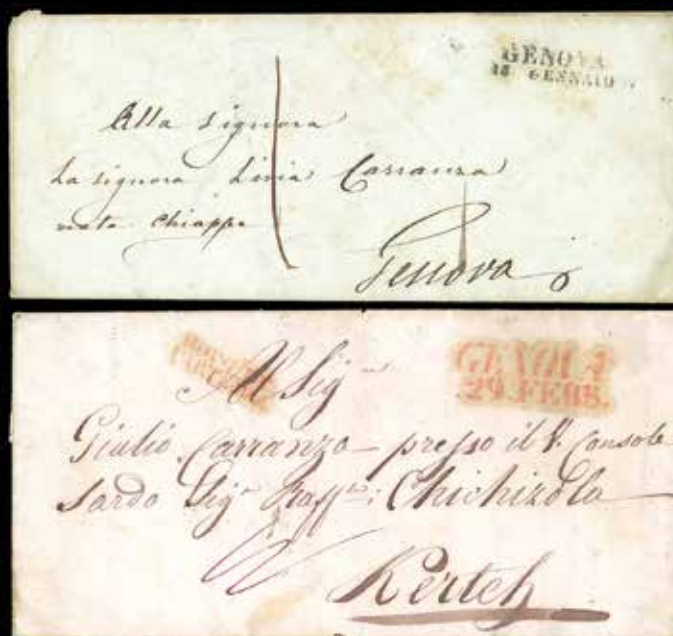 GENOVA
18 GENNAIO
Alla Signora
La signora Livia Carranza
nata Chiappe
Genova
GENOVA
29. FEBB.
Al Sig.
Giulio Carranza presso il V. Console
Sardo Sigr Raffle: Chichizola
Kertch